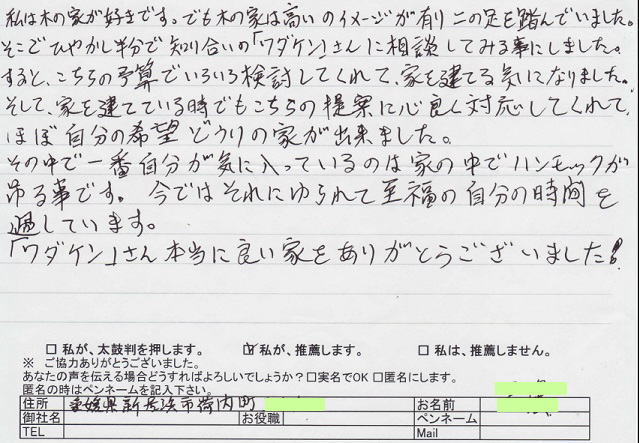 私は木の家が好きです。でも木の家は高いのイメージが有り二の足を踏んでいました。
そこでひやかし半分で知り合いの「ワダケン」さんに相談してみる事にしました。
すると、こちらの予算でいろいろ検討してくれて、家を建てる気になりました。
そして、家を建てている時でもこちらの提案に心良く対応してくれて、
ほぼ自分の希望どうりの家が出来ました。
その中で一番自分が気に入っているのは家の中でハンモックが
吊る事です。今ではそれにゆられて至福の自分の時間を
過しています。
「ワダケン」さん本当に良い家をありがとうございました!
□ 私が、太鼓判を押します。 ☑ 私が、推薦します。 □ 私は、推薦しません。
※ ご協力ありがとうございました。
あなたの声を伝える場合どうすればよろしいでしょうか?□実名でOK □匿名にします。
匿名の時はペンネームを記入下さい。
住所 愛媛県新居浜市 お名前
御社名 お役職 ペンネーム
TEL Mail